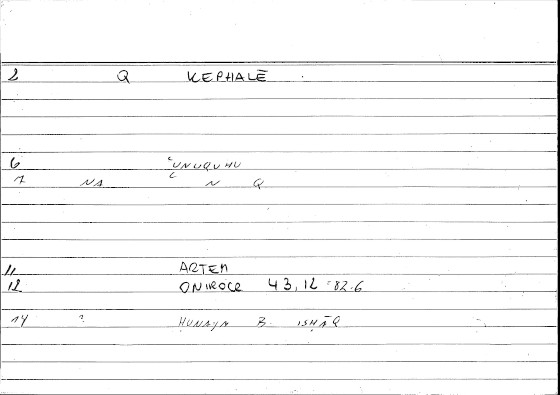 2 Q KEPHALĒ
6 ʿUNUQUHU
7 NA ʿ N Q
11 ARTEM
12 ONIROCR 43,12 82.6
14 ? ḤUNAYN B. ISḤĀQ